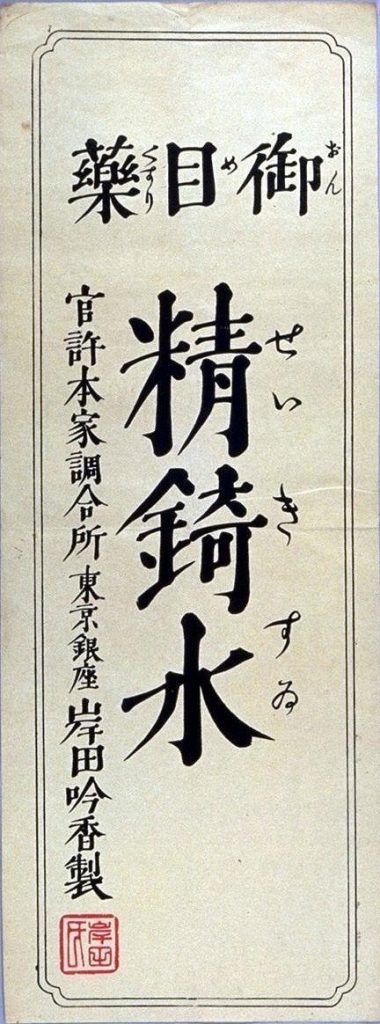 御目藥
おん め くすり
精錡水
せい き すゐ
官許本家調合所 東京銀座 岸田吟香製